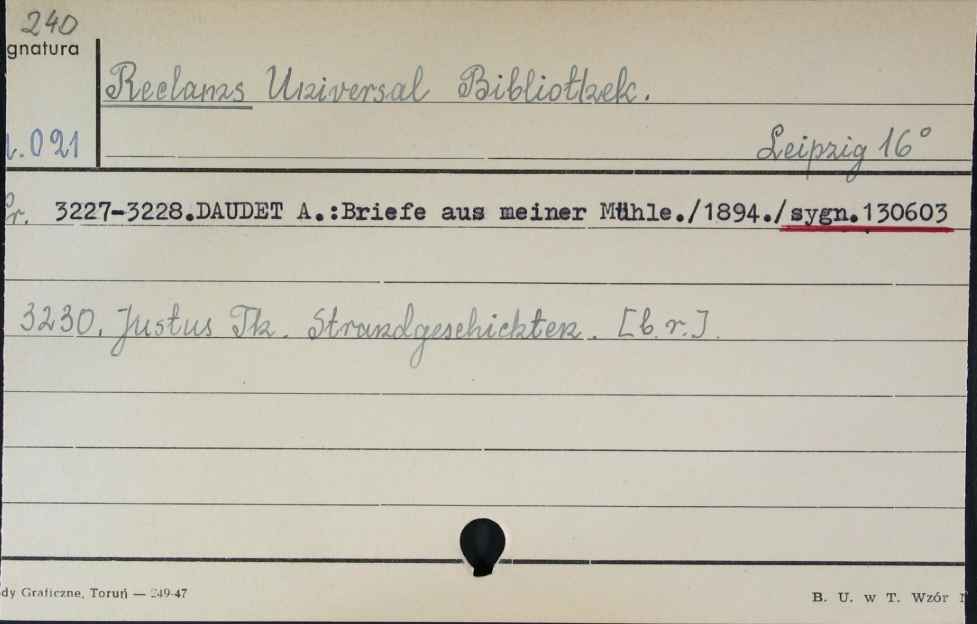 240
gnatura
Reclams Universal Bibliothek.
.021
Leipzig 16°
r. 3227-3228.DAUDET A.:Briefe aus meiner Mühle./1894./sygn.130603
3230. Justus Th. Strandgeschichten. [b.r.].
dy Graficzne, Toruń — 249-47
B. U. w T. Wzór